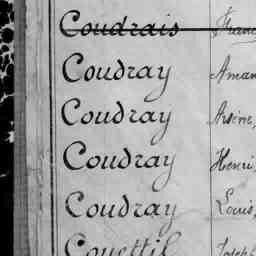 Coudrais
Coudray Aman
Coudray Arsène,
Coudray Henri,
Coudray Louis,
Couettil Joseph